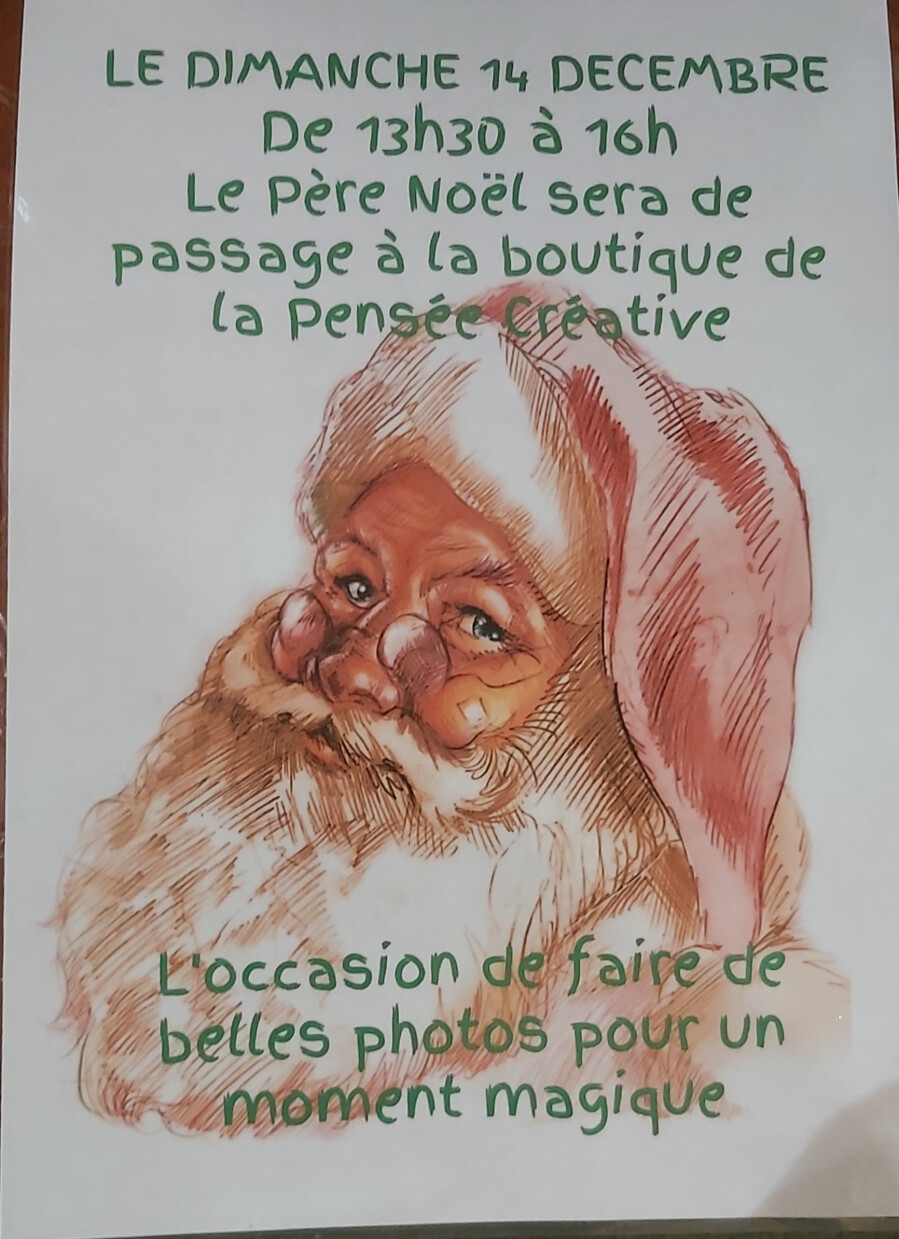 LE DIMANCHE 14 DECEMBRE
De 13h30 à 16h
Le Père Noël sera de
passage à la boutique de
la Pensée Créative
L'occasion de faire de
belles photos pour un
moment magique